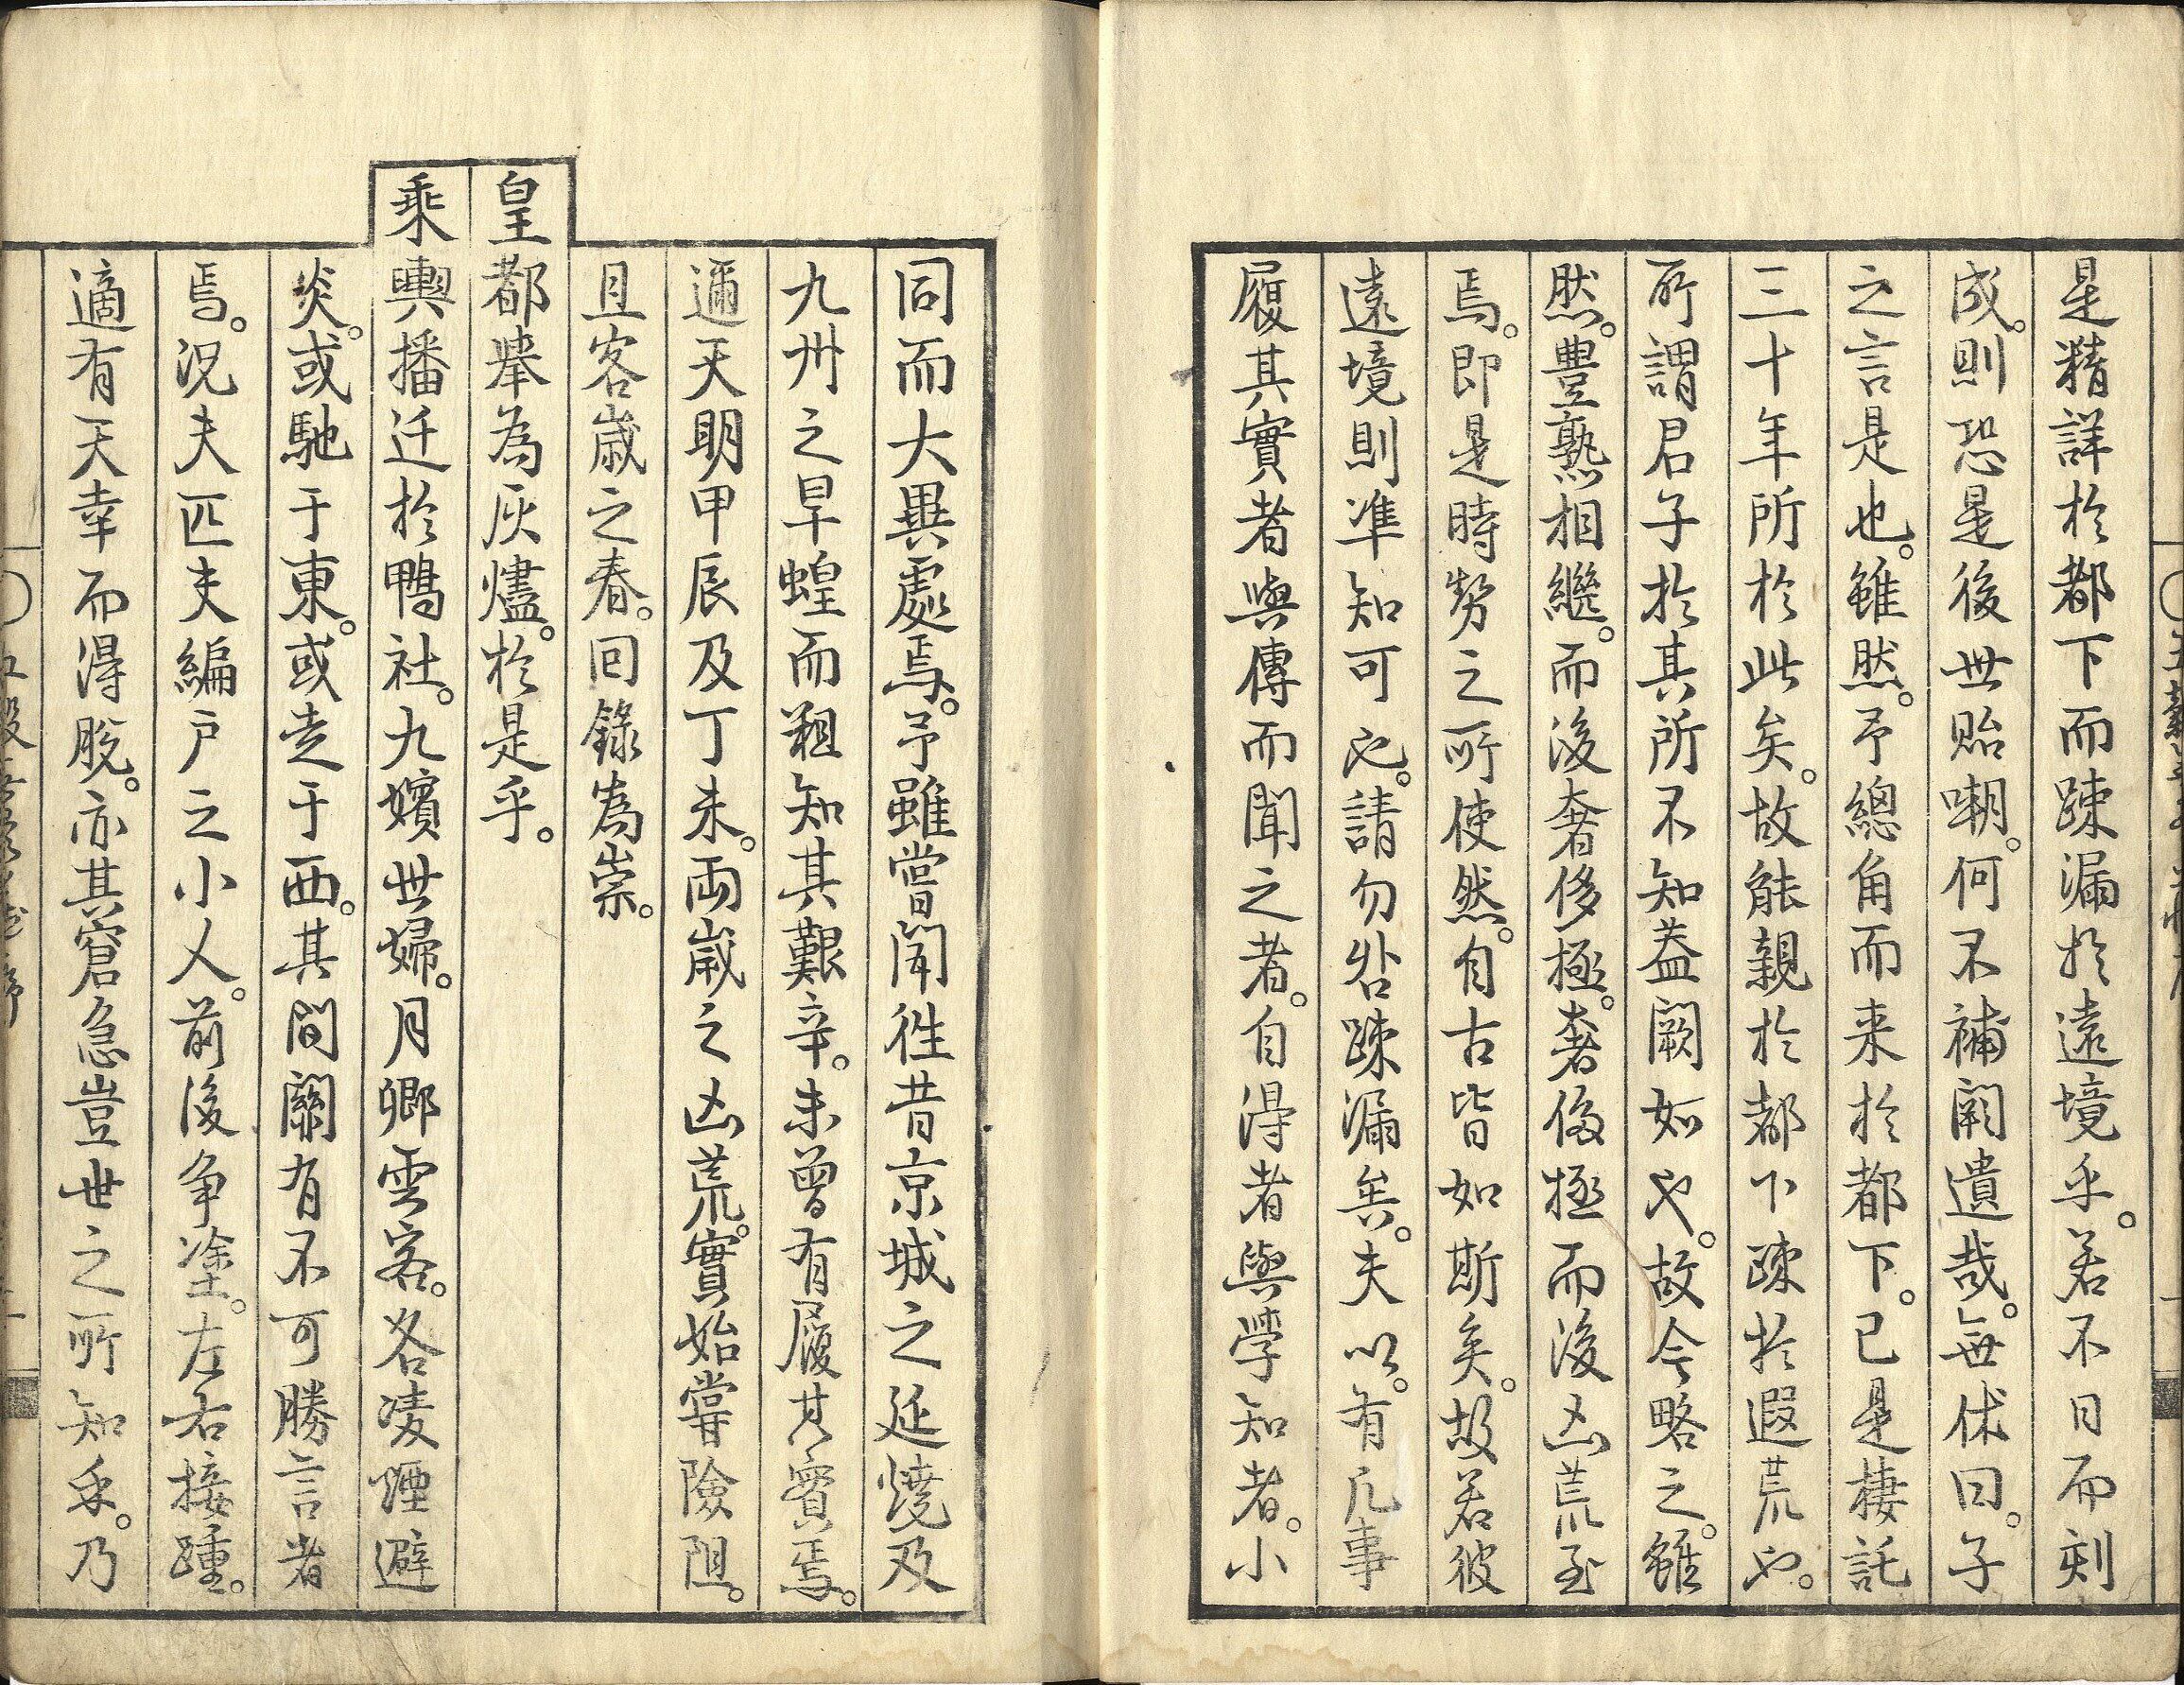 是精詳於都下而疎漏於遠境乎。若不日而刻
成。則恐是後世貽嘲。何不補闕遺哉。無休曰。子
之言是也。雖然。予總角而来於都下。已是棲託
三十年所於此矣。故能親於都下疎於遐荒也。
所謂君子於其所不知蓋闕如也。故今略之。雖
然。豊熟相継。而後奢侈極。奢侈極而後凶荒至
焉。即是時勢之所使然。自古皆如斯矣。故若彼
遠境則準知可也。請勿咎疎漏矣。夫以。有凡事
履其實者與傳而聞之者。自得者與學知者。小
同而大異處焉。予雖嘗聞徃昔京城之延燒及
九州之旱蝗而粗知其艱辛。未曾有履其實焉。
邇天明甲辰及丁未。兩歳之凶荒。實始嘗險阻。
且客歳之春。回録為祟。
皇都挙為灰燼。於是乎。
乘輿播迁於鴨社。九嬪世婦。月卿雲客。各凌煙避
炎。或馳于東。或走于西。其間關有不可勝言者
焉。況夫匹夫編戸之小人。前後争塗。左右接踵。
適有天幸而得脱。亦其窘急豈世之所知乎。乃